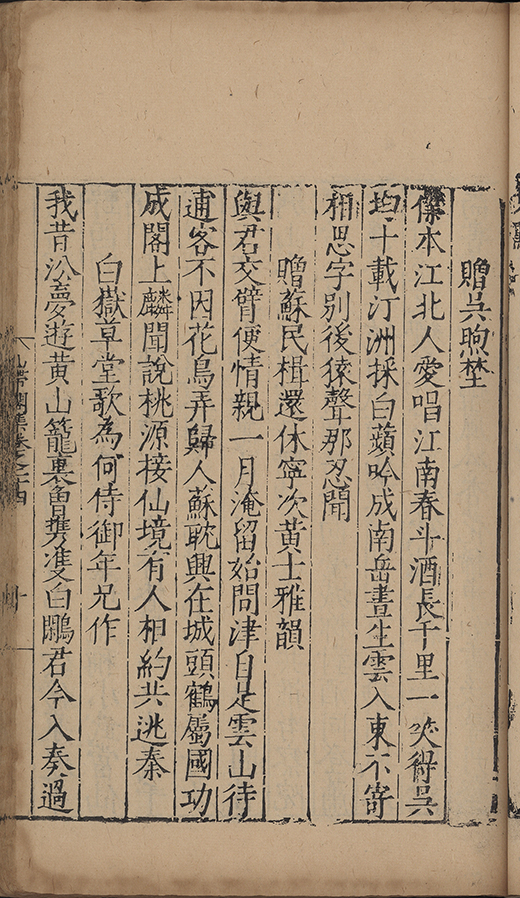 贈吳煦𡋯
傑本江北人愛唱江南春斗酒長千里一笑得吳
均十載汀洲採白蘋吟成南岳晝生雲入東不寄
相思字別後猿聲那忍聞
贈蘇民楫還休寧次黃士雅韻
與君交臂便情親一月淹留始問津自是雲山待
逋客不因花鳥弄歸人蘇耽興在城頭鶴屬國功
成閣上麟聞說桃源接仙境有人相約共逃秦
白嶽草堂歌為何侍御年兄作
我昔汾夢遊黃山籠裏曾攜雙白鷴君今入奏過
集卷之十四